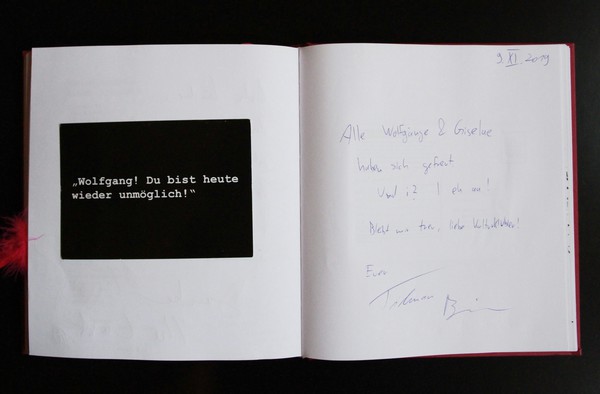 „Wolfgang! Du bist heute
wieder unmöglich!“
9. XI. 2019
Alle Wolfgänge & Giselae
haben sich gefreut
Und i? I eh au!
Bleibt uns treu, liebe
Euer